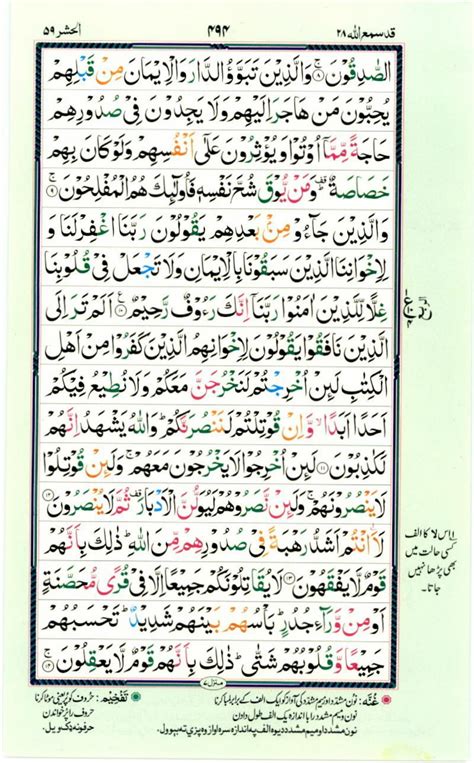 قد سمع الله ۲۸
۴۹۴
الحشر ۵۹
الصّٰدِقُوْنَ ۚ﴿۸﴾ وَالَّذِيْنَ تَبَوَّؤُ الدَّارَ وَالْاِيْمَانَ مِنْ قَبْلِهِمْ
يُحِبُّوْنَ مَنْ هَاجَرَ اِلَيْهِمْ وَلَا يَجِدُوْنَ فِيْ صُدُوْرِهِمْ
حَاجَةً مِّمَّاۤ اُوْتُوْا وَيُؤْثِرُوْنَ عَلٰۤى اَنْفُسِهِمْ وَلَوْ كَانَ بِهِمْ
خَصَاصَةٌ ؕ۫ وَمَنْ يُّوْقَ شُحَّ نَفْسِهٖ فَاُولٰٓئِكَ هُمُ الْمُفْلِحُوْنَ ۚ﴿۹﴾
وَالَّذِيْنَ جَآءُوْ مِنْۢ بَعْدِهِمْ يَقُوْلُوْنَ رَبَّنَا اغْفِرْ لَنَا وَ
لِاِخْوَانِنَا الَّذِيْنَ سَبَقُوْنَا بِالْاِيْمَانِ وَلَا تَجْعَلْ فِيْ قُلُوْبِنَا
غِلًّا لِّلَّذِيْنَ اٰمَنُوْا رَبَّنَاۤ اِنَّكَ رَءُوْفٌ رَّحِيْمٌ ﴿۱۰﴾ اَلَمْ تَرَ اِلَى
الَّذِيْنَ نَافَقُوْا يَقُوْلُوْنَ لِاِخْوَانِهِمُ الَّذِيْنَ كَفَرُوْا مِنْ اَهْلِ
الْكِتٰبِ لَئِنْ اُخْرِجْتُمْ لَنَخْرُجَنَّ مَعَكُمْ وَلَا نُطِيْعُ فِيْكُمْ
اَحَدًا اَبَدًا ۙ وَّاِنْ قُوْتِلْتُمْ لَنَنْصُرَنَّكُمْ ؕ وَاللّٰهُ يَشْهَدُ اِنَّهُمْ
لَكٰذِبُوْنَ ﴿۱۱﴾ لَئِنْ اُخْرِجُوْا لَا يَخْرُجُوْنَ مَعَهُمْ ۚ وَلَئِنْ قُوْتِلُوْا
لَا يَنْصُرُوْنَهُمْ ۚ وَلَئِنْ نَّصَرُوْهُمْ لَيُوَلُّنَّ الْاَدْبَارَ ۫ ثُمَّ لَا يُنْصَرُوْنَ ﴿۱۲﴾
لَاۡاَنْتُمْ اَشَدُّ رَهْبَةً فِيْ صُدُوْرِهِمْ مِّنَ اللّٰهِ ؕ ذٰلِكَ بِاَنَّهُمْ
قَوْمٌ لَّا يَفْقَهُوْنَ ﴿۱۳﴾ لَا يُقَاتِلُوْنَكُمْ جَمِيْعًا اِلَّا فِيْ قُرًى مُّحَصَّنَةٍ
اَوْ مِنْ وَّرَآءِ جُدُرٍ ؕ بَاْسُهُمْ بَيْنَهُمْ شَدِيْدٌ ؕ تَحْسَبُهُمْ
جَمِيْعًا وَّقُلُوْبُهُمْ شَتّٰى ؕ ذٰلِكَ بِاَنَّهُمْ قَوْمٌ لَّا يَعْقِلُوْنَ ۚ﴿۱۴﴾
۱ اس لا کا الف
کسی حالت میں
بھی پڑھا نہیں
جاتا۔
منزل ۷
غُنَّہ: نون مشدد اور میم مشدد کی آواز کو ایک الف کے برابر لمبا کرنا
نون و میم مشدد را باندازہ یک الف طول دادن
نون مشدد او میم مشدد دیوہ الف پہ اندازہ سرہ اواز و پزې تہ بیوول۔
تفخیم: حروف کو پُر یعنی موٹا کرنا
حروف را پُر خواندن
حرفونہ ډک ویل۔